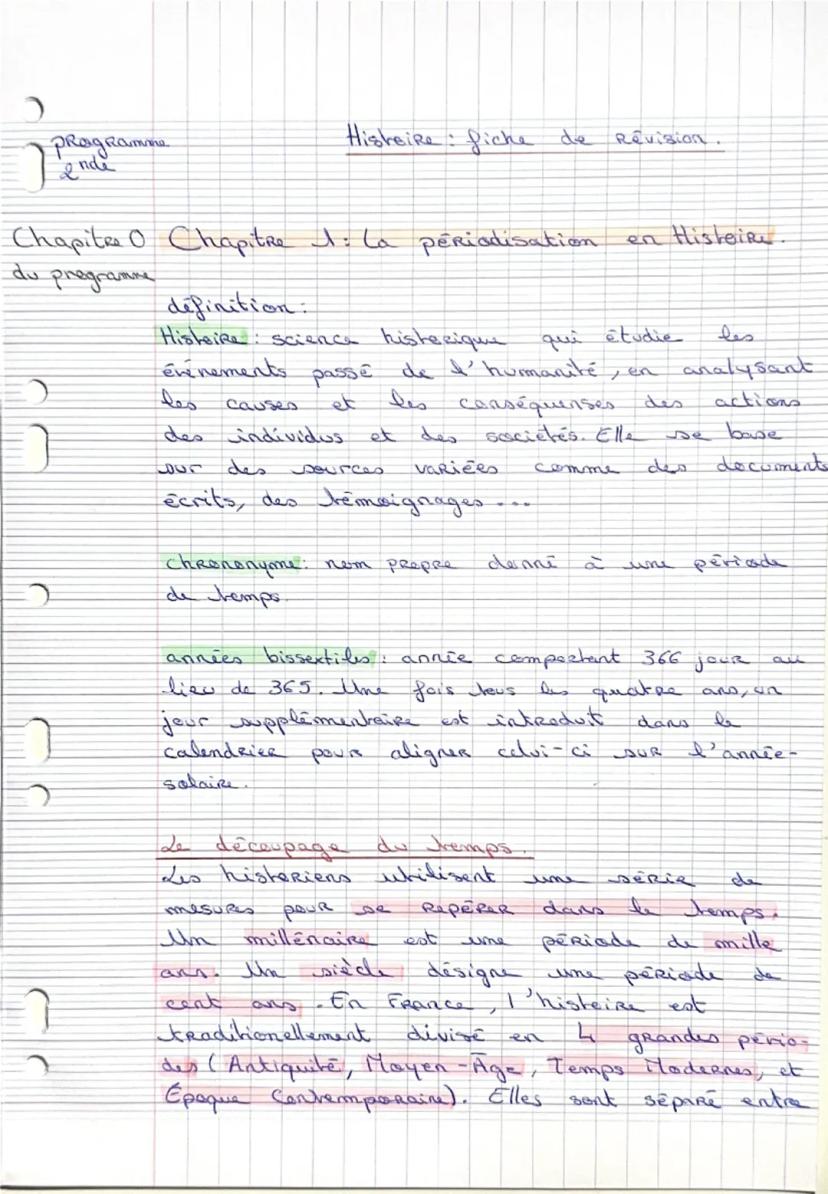 programme
2nde
Histoire : fiche de révision.
Chapitre 0
du programme
Chapitre 1 : La périodisation en Histoire.
définition :
Histoire : science historique qui étudie les
événements passé de l'humanité, en analysant
les causes et les conséquenses des actions
des individus et des sociétés. Elle se base
sur des sources variées comme des documents
écrits, des témoignages ...
chrononyme : nom propre donné à une période
de temps.
années bissextiles : année comportant 366 jour au
lieu de 365. Une fois tous les quatre ans, un
jour supplémentaire est introduit dans le
calendrier pour aligner celui-ci sur l'année-
solaire.
Le découpage du temps.
Les historiens utilisent une série de
mesures pour se repérer dans le temps.
Un millénaire est une période de mille
ans. Un siècle désigne une période de
cent ans. En France, l'histoire est
traditionellement divisé en 4 grandes pério-
des (Antiquité, Moyen-Âge, Temps Modernes, et
Époque Contemporaine). Elles sont séparé entre